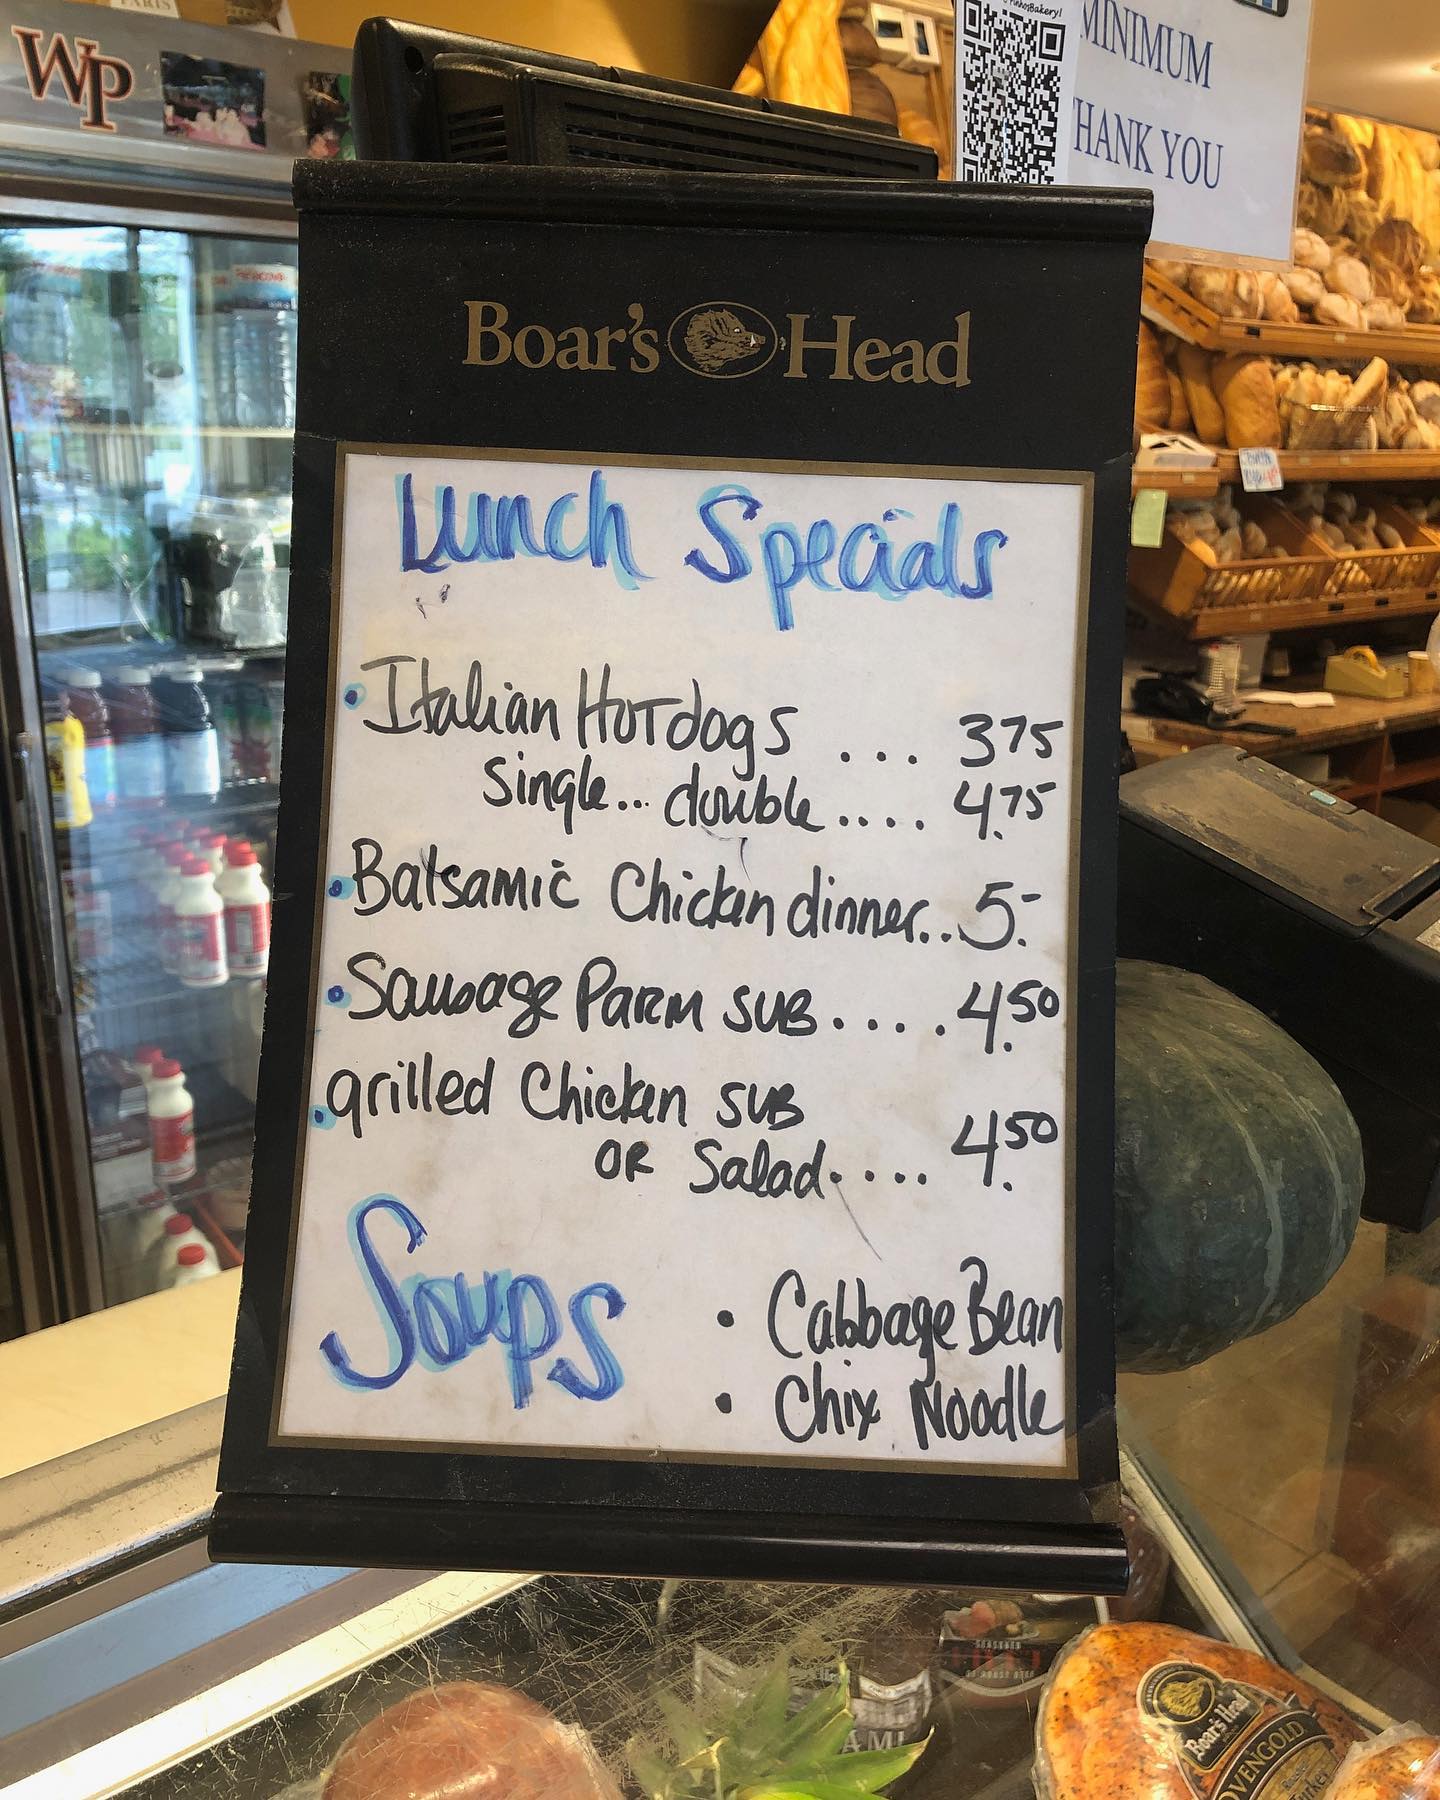 PARIS
WP
PinhosBakery!
MINIMUM
THANK YOU
Boar's Head
Lunch Specials
• Italian HOTdogs ... 3 75
single... double.... 4.75
• Balsamic Chicken dinner... 5.-
• Sausage PARM SUB..... 4.50
• grilled Chicken SUB
OR Salad..... 4.50
Soups
• Cabbage Bean
• Chix Noodle
Boar's Head
OVENGOLD
Turkey